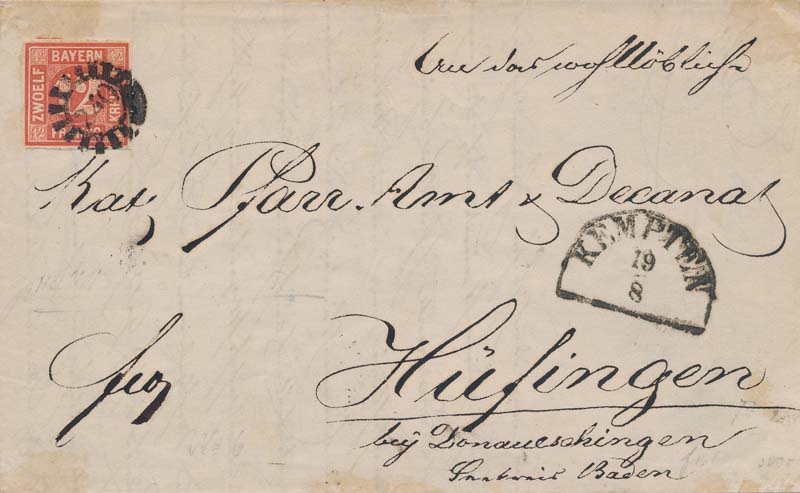 BAYERN
ZWOELF
KREUZER
FRANCO
12
An das wohllöbliche
Kat. Pfarr. Amt & Decanat
KEMPTEN
19
8
Hüfingen
bey Donaueschingen
Seekreis Baden